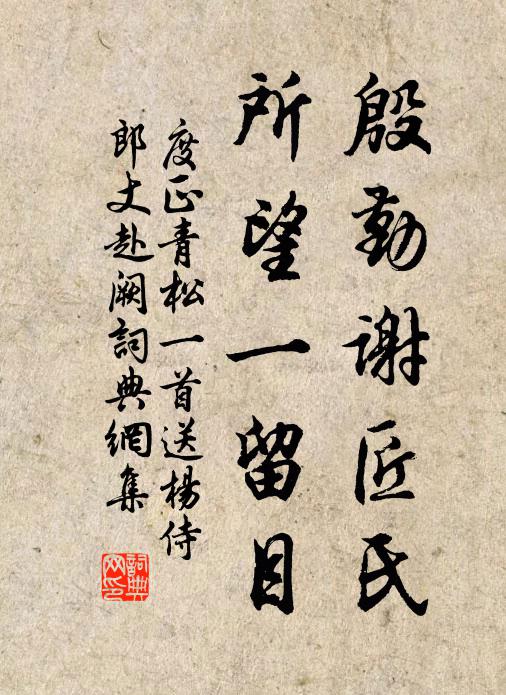 殷勤謝匠氏
所望一留目
度正青松一首送楊侍
郎丈赴闕詞典網集
詞典網印